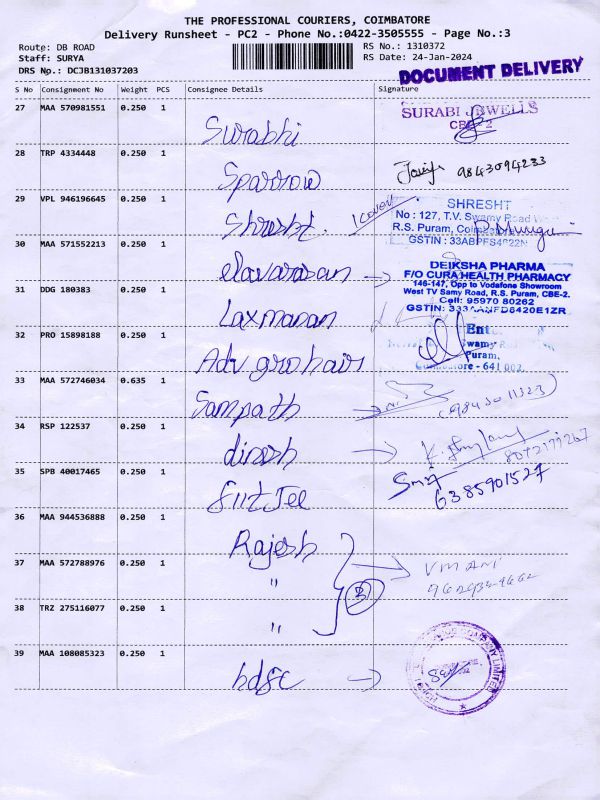 THE PROFESSIONAL COURIERS, COIMBATORE
Delivery Runsheet - PC2 - Phone No.:0422-3505555 - Page No.:3
Route: DB ROAD
RS No.: 1310372
Staff: SURYA
RS Date: 24-Jan-2024
DRS No.: DCJB131037203
DOCUMENT DELIVERY
S No Consignment No Weight PCS Consignee Details Signature
27 MAA 570981551 0.250 1
SURABI JEWELLS
CBE-2
Surabhi
28 TRP 4334448 0.250 1
9843094233
Sparrow
29 VPL 946196645 0.250 1
SHRESHT
No : 127, T.V. Swamy Road
R.S. Puram, Coimbatore
GSTIN : 33ABPFS4F22N
Shresht. 1 cover
P. Murugan
30 MAA 571552213 0.250 1
elavarasan
DEIKSHA PHARMA
F/O CURA HEALTH PHARMACY
146-147, Opp to Vodafone Showroom
West TV Samy Road, R.S. Puram, CBE-2.
Cell: 95970 80262
GSTIN: 333AANFD8420E1ZR
31 DDG 180383 0.250 1
Laxmanan
32 PRO 15898188 0.250 1
Swamy
Puram,
Coimbatore - 641 002
Adv gro hair
33 MAA 572746034 0.635 1
Sampath
34 RSP 122537 0.250 1
dinesh
35 SPB 40017465 0.250 1
6385901527
FiitJee
36 MAA 944536888 0.250 1
Rajesh
37 MAA 572788976 0.250 1
V MANI
"
3
38 TRZ 275116077 0.250 1
"
39 MAA 108085323 0.250 1
hdfc